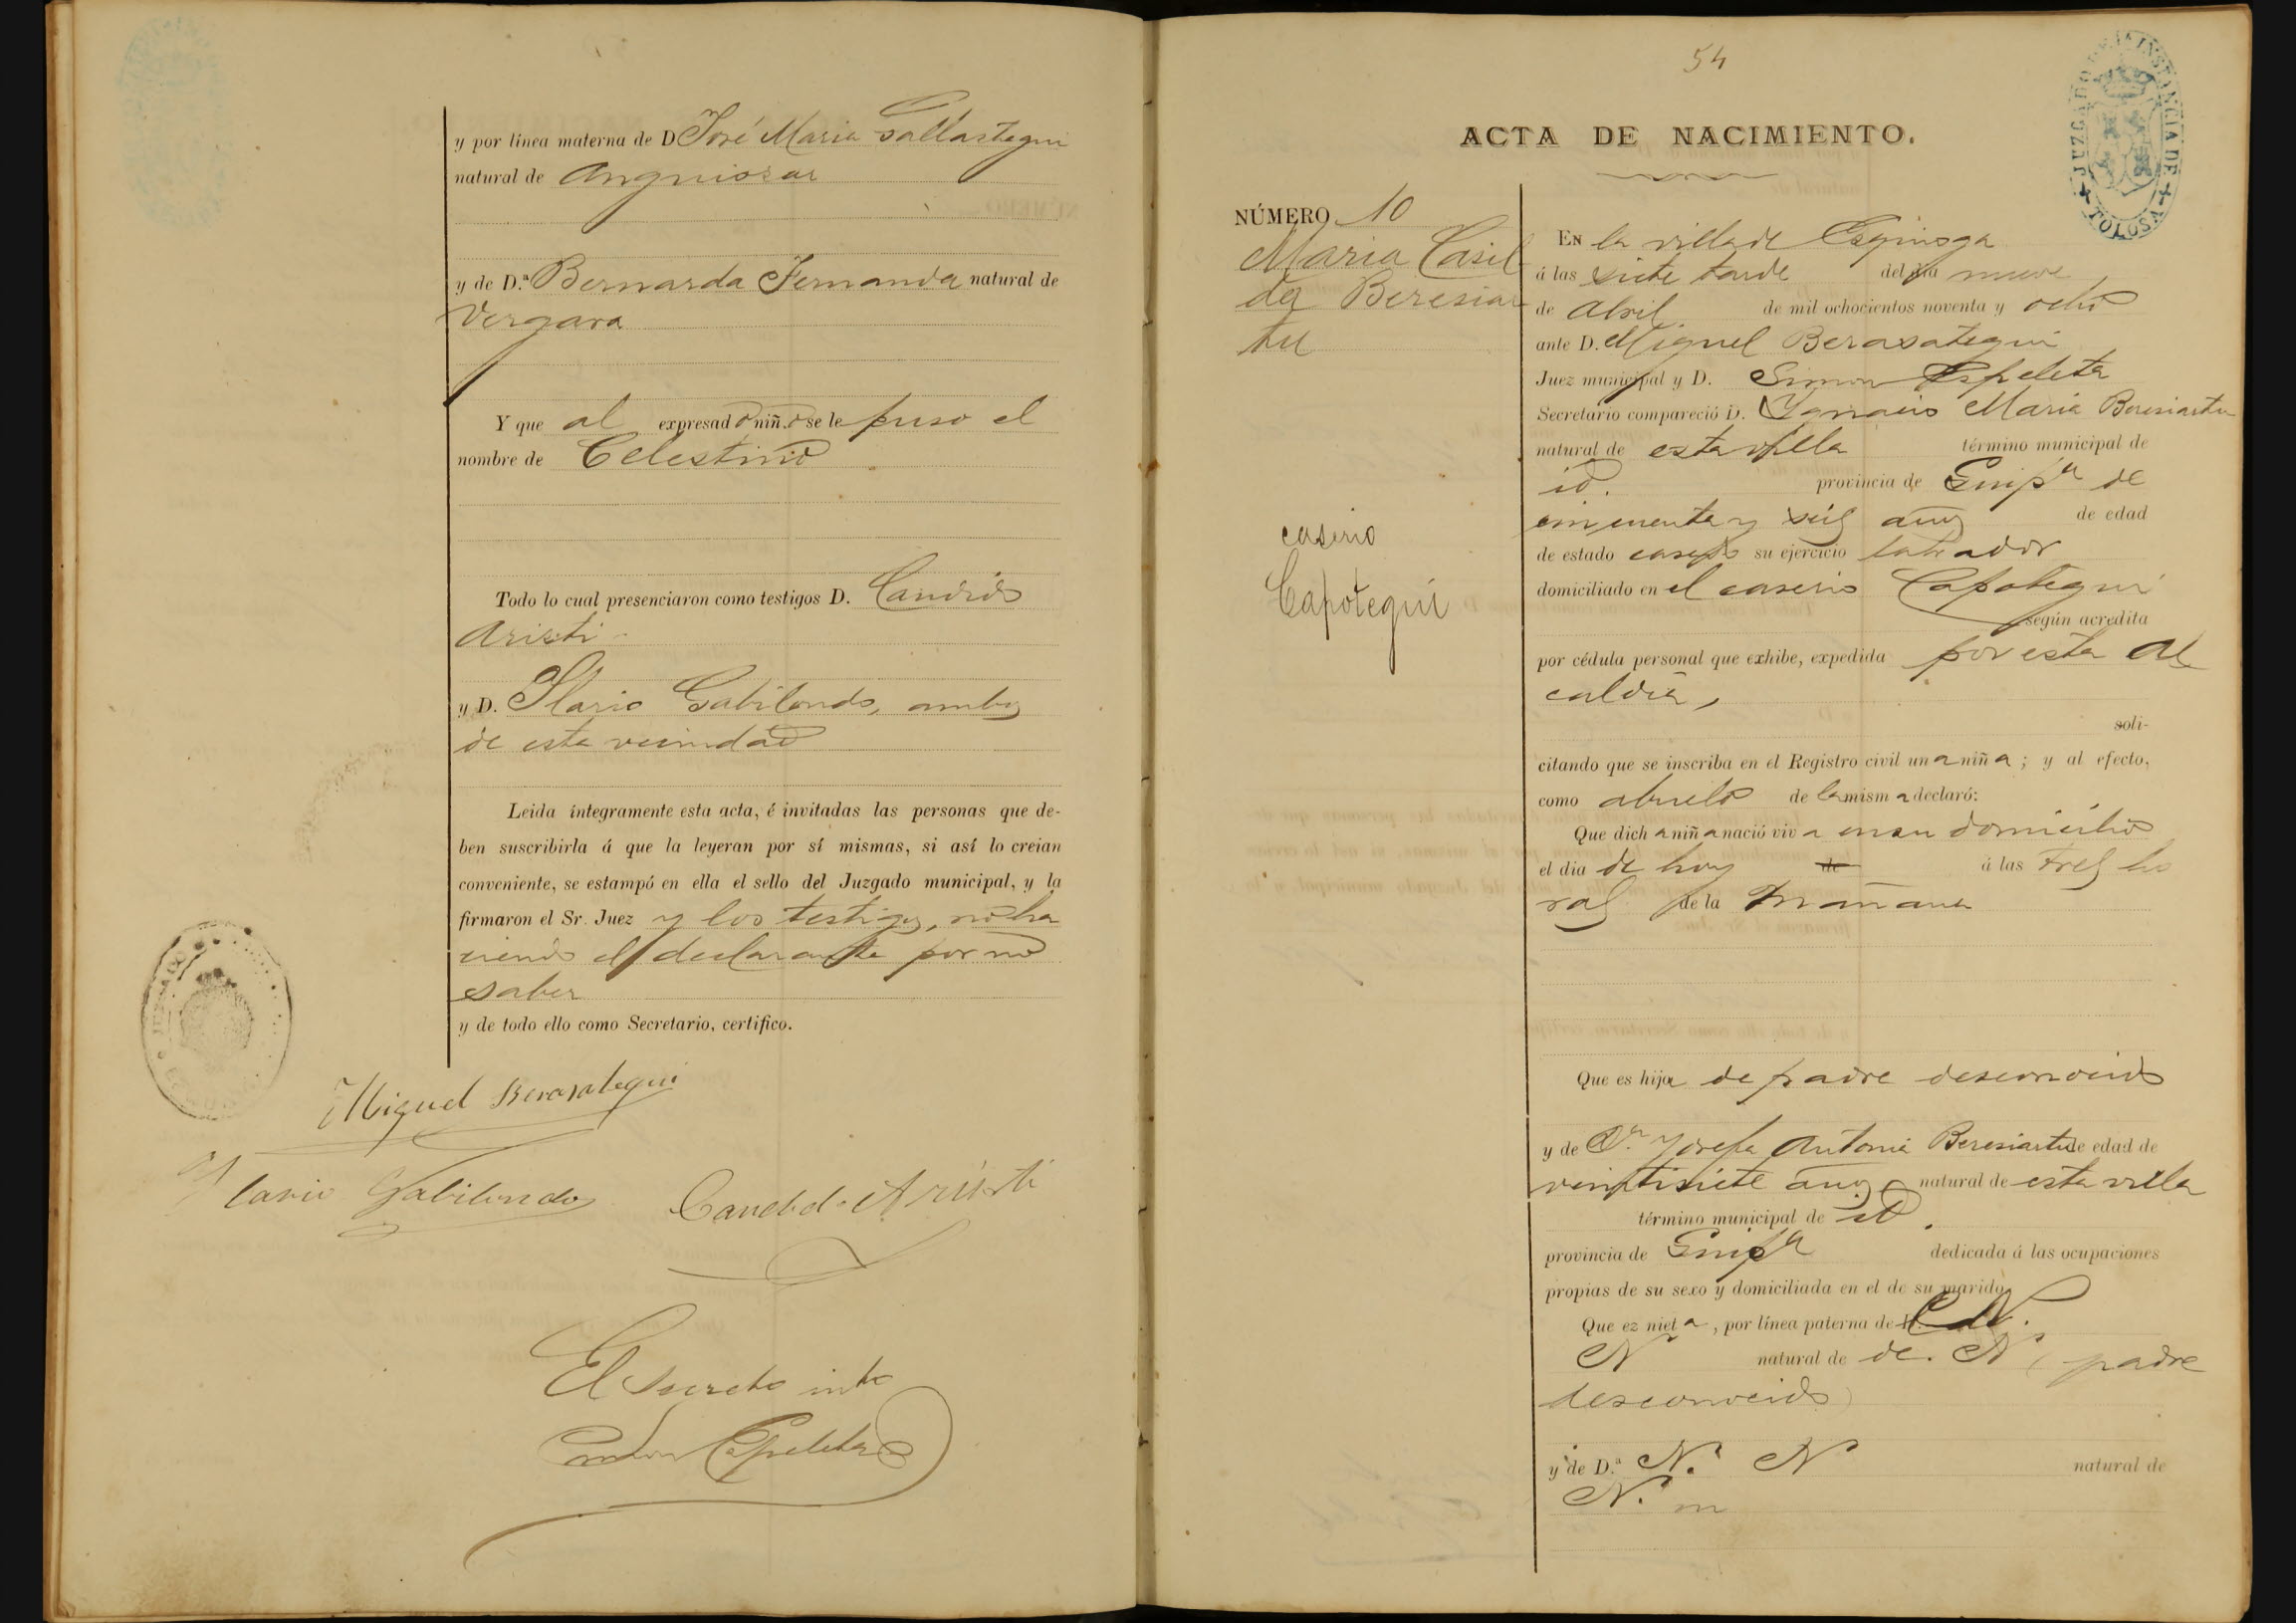 y por línea materna de D José Maria Gallastegui
natural de Anguiosar
y de D.ª Bernarda Fernanda natural de
Vergara
Y que al expresado niño se le puso el
nombre de Celestino
Todo lo cual presenciaron como testigos D. Candido
Aristi
y D. Ilario Gabilondo, ambos
de esta vecindad
Leida íntegramente esta acta, é invitadas las personas que de-
ben suscribirla á que la leyeran por sí mismas, si así lo creian
conveniente, se estampó en ella el sello del Juzgado municipal, y la
firmaron el Sr. Juez y los testigos, no ha
ciendo el declarante por no
saber
y de todo ello como Secretario, certifico.
Miguel Berasategui
Ilario Gabilondo Candido Aristi
El Secreto into
Simon Espeleta
54
ACTA DE NACIMIENTO.
JUZGADO DE 1ª INSTANCIA DE TOLOSA
NÚMERO 10
Maria Casil
da Beresiar
tu
caserio
Capotegui
En la villa de Ezquioga
á las siete tarde del dia nueve
de Abril de mil ochocientos noventa y ocho
ante D. Miguel Berasategui
Juez municipal y D. Simon Espeleta
Secretario compareció D. Ygnacio Maria Beresiartu
natural de esta villa término municipal de
id. provincia de Guipª de
cincuenta y seis años de edad
de estado casado su ejercicio labrador
domiciliado en el caserio Capotegui
según acredita
por cédula personal que exhibe, expedida por esta Al
caldia,
soli-
citando que se inscriba en el Registro civil una niña; y al efecto,
como abuelo de la misma declaró:
Que dicha niña nació viva en su domicilio
el dia de hoy de á las tres ho
ras de la mañana
Que es hija de padre desconocido
y de Dª Josefa Antonia Beresiartu de edad de
veintisiete años natural de esta villa
término municipal de id.
provincia de Guipª dedicada á las ocupaciones
propias de su sexo y domiciliada en el de su marido
Que ez nieta, por línea paterna de D. N.
N natural de de. N (padre
desconocido)
y de D.ª N. N natural de
N.